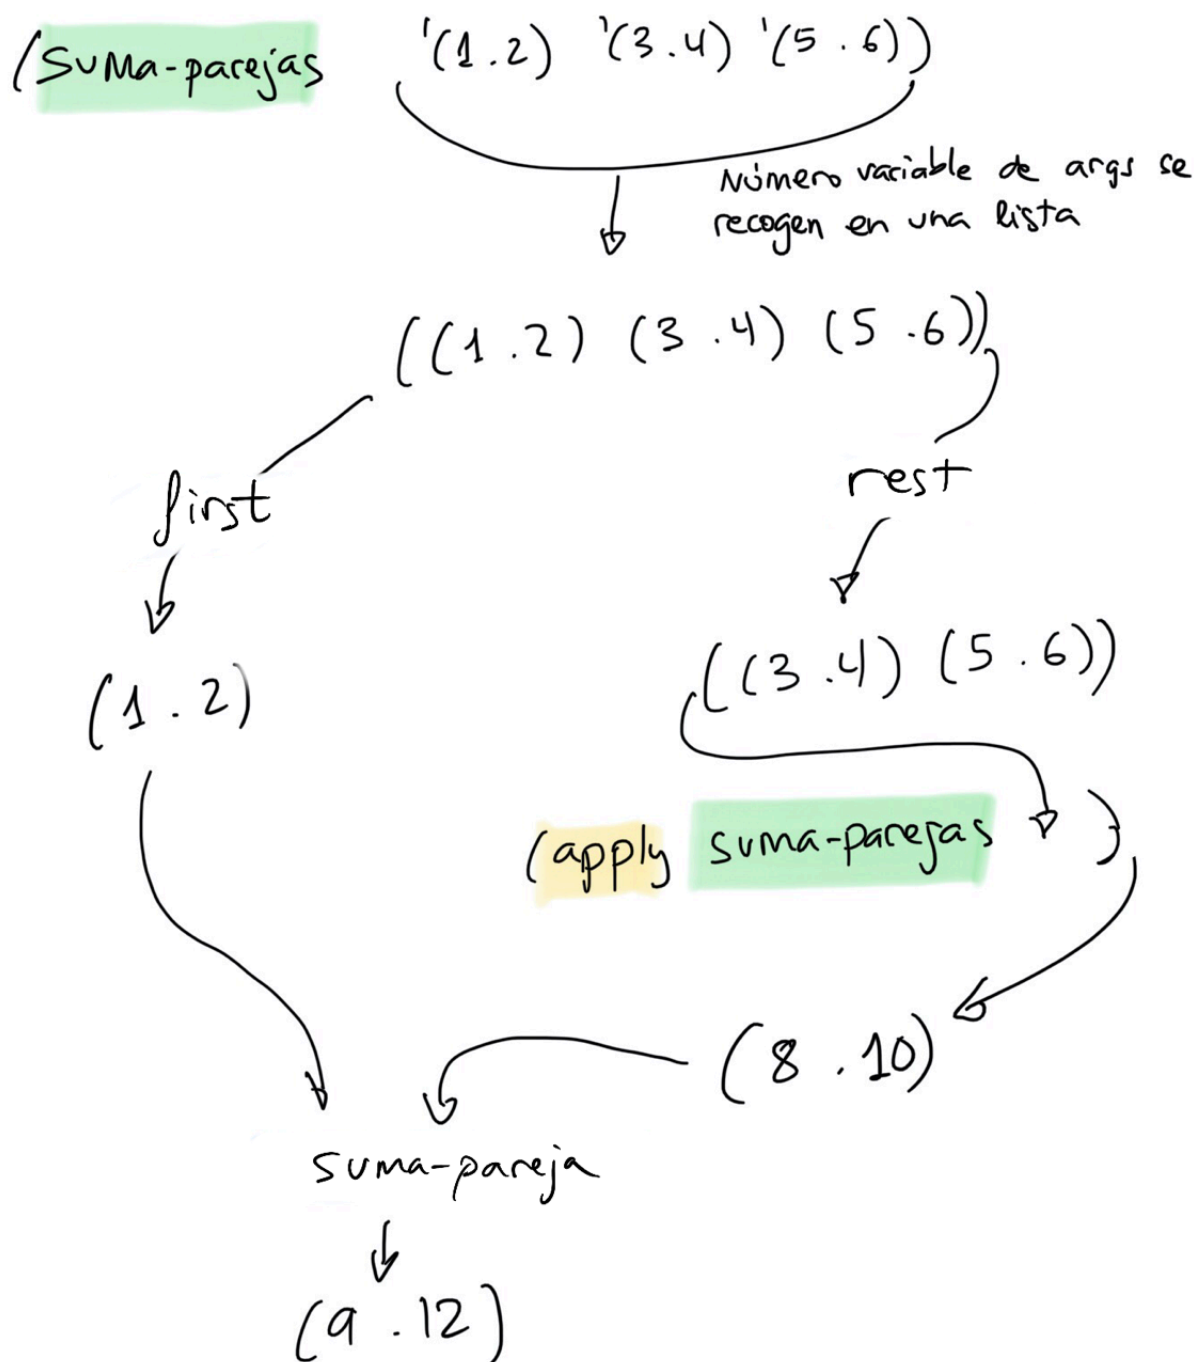 (suma-parejas '(1.2) '(3.4) '(5.6))
Número variable de args se
recogen en una lista
((1.2) (3.4) (5.6))
first
rest
(1.2)
((3.4) (5.6))
(apply suma-parejas )
(8.10)
suma-pareja
(9.12)